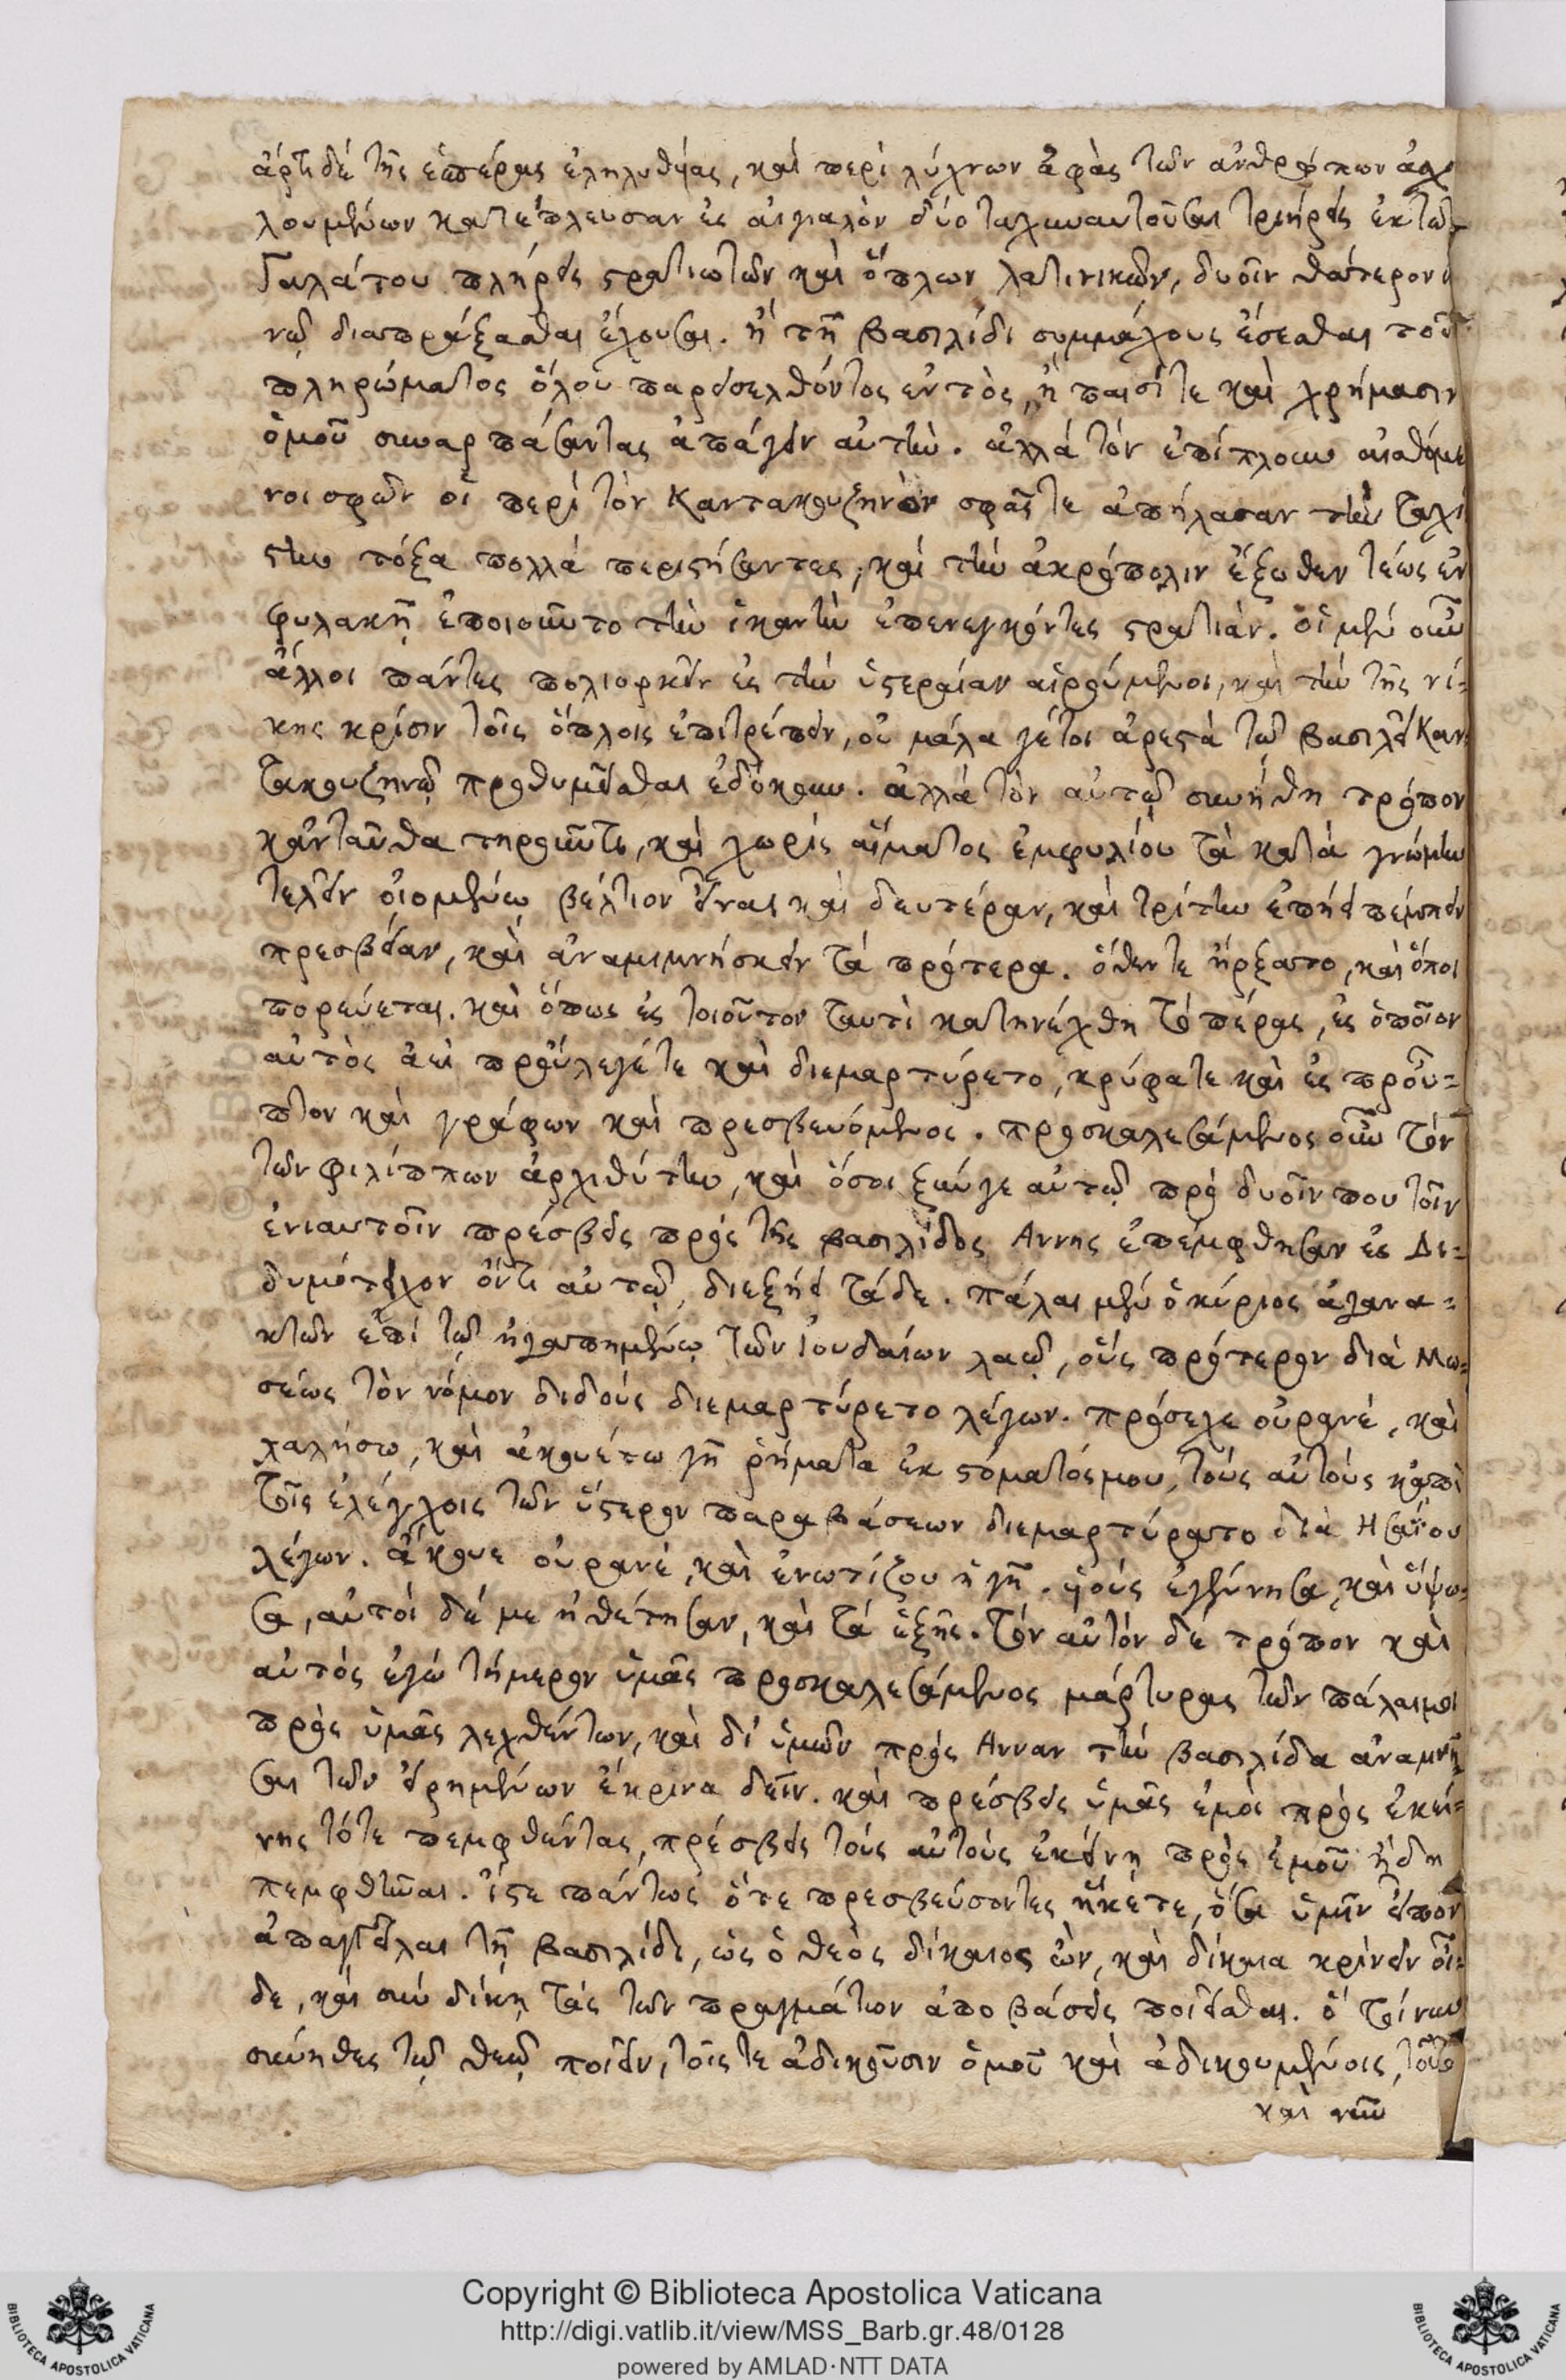 ἄρτι δὲ τῆς ἑσπέρας ἐληλυθυίας, καὶ περὶ λύχνων ἁφὰς τῶν ἀνθρώπων ἀσχο
λουμένων κατέπλευσαν ἐς αἰγιαλὸν δύο ταχυναυτοῦσαι τριήρεις ἐκ τῶν
Γαλάτου πλήρεις στρατιωτῶν καὶ ὅπλων λατινικῶν, δυοῖν θάτερον ἐν
νῷ διαπράξασθαι ἔχουσαι. ἢ τῇ βασιλίδι συμμάχους ἔσεσθαι τοῦ
πληρώματος ὅλου παρεισελθόντος ἐντὸς, ἢ παισί τε καὶ χρήμασιν
ὁμοῦ συναρπάσαντας ἀπάγειν αὐτήν. ἀλλὰ τὸν ἐπίπλουν αἰσθόμε
νοι σφῶν οἱ περὶ τὸν Καντακουζηνὸν σφᾶς τε ἀπήλασαν τὴν ταχί
στην τόξα πολλὰ περιστήσαντες, καὶ τὴν ἀκρόπολιν ἔξωθεν τέως ἐν
φυλακῇ ἐποιοῦντο τὴν ἱκανὴν ἐπενεγκόντες στρατιάν. οἱ μὲν οὖν
ἄλλοι πάντες πολιορκεῖν ἐς τὴν ὑστεραίαν αἱρούμενοι, καὶ τὴν τῆς νί-
κης κρίσιν τοῖς ὅπλοις ἐπιτρέπειν, οὐ μάλα γέ τοι ἀρεστὰ τῷ βασιλεῖ Καν-
τακουζηνῷ προθυμεῖσθαι ἐδόκουν. ἀλλὰ τὸν αὐτῷ συνήθη τρόπον
κἀνταῦθα τηροῦντι, καὶ χωρὶς αἵματος ἐμφυλίου τὰ κατὰ γνώμην
τελεῖν οἰομένῳ βέλτιον εἶναι καὶ δευτέραν, καὶ τρίτην ἐπῄει πέμπειν
πρεσβείαν, καὶ ἀναμιμνήσκειν τὰ πρότερα. ὅθεν τε ἤρξατο, καὶ ὅποι
πορεύεται. καὶ ὅπως ἐς τοιοῦτον ταυτὶ κατηνέχθη τὸ πέρας, ἐς ὁποῖον
αὐτὸς ἀεὶ προὔλεγέ τε καὶ διεμαρτύρετο, κρύφα τε καὶ ἐς προὖ-
πτον καὶ γράφων καὶ πρεσβευόμενος. προσκαλεσάμενος οὖν τὸν
τῶν φιλίππων ἀρχιθύτην, καὶ ὅσοι ξὺν γε αὐτῷ πρὸ δυοῖν που τοῖν
ἐνιαυτοῖν πρέσβεις πρὸς τῆς βασιλίδος Ἄννης ἐπέμφθησαν ἐς Δι-
δυμότειχον ὄντι αὐτῷ, διεξῄει τάδε. πάλαι μὲν ὁ κύριος ἀγανα-
κτῶν ἐπὶ τῷ ἠγαπημένῳ τῶν ἰουδαίων λαῷ, οὓς πρότερον διὰ Μω-
σέως τὸν νόμον διδοὺς διεμαρτύρετο λέγων. πρόσεχε οὐρανέ, καὶ
λαλήσω, καὶ ἀκουέτω γῆ ῥήματα ἐκ στόματός μου, τοὺς αὐτοὺς κἀπὶ
τοῖς ἐλέγχοις τῶν ὕστερον παραβάσεων διεμαρτύρατο διὰ Ησαΐου
λέγων. ἄκουε οὐρανέ, καὶ ἐνωτίζου ἡ γῆ. υἱοὺς ἐγέννησα, καὶ ὕψω-
σα, αὐτοὶ δέ με ἠθέτησαν, καὶ τὰ ἑξῆς. τὸν αὐτὸν δὲ τρόπον καὶ
αὐτὸς ἐγὼ τήμερον ὑμᾶς προσκαλεσάμενος μάρτυρας τῶν πάλαι μοι
πρὸς ὑμᾶς λεχθέντων, καὶ δι' ὑμῶν πρὸς Ἄνναν τὴν βασιλίδα ἀναμνῆ
σαι τῶν εἰρημένων ἔκρινα δεῖν. καὶ πρέσβεις ὑμᾶς ἐμοὶ πρὸς ἐκεί-
νης τότε πεμφθέντας, πρέσβεις τοὺς αὐτοὺς ἐκείνῃ πρὸς ἐμοῦ ἤδη
πεμφθῆναι. ἴστε πάντως ὅτε πρεσβεύσοντες ἥκετε, ὅσα ὑμῖν εἶπον
ἀπαγγεῖλαι τῇ βασιλίδι, ὡς ὁ θεὸς δίκαιος ὢν, καὶ δίκαια κρίνειν οἶ-
δε, καὶ σὺν δίκῃ τὰς τῶν πραγμάτων ἀποβάσεις ποιεῖσθαι. ὃ τοίνυν
σύνηθες τῷ θεῷ ποιεῖν, τοῖς τε ἀδικοῦσιν ὁμοῦ καὶ ἀδικουμένοις, τοῦτο
καὶ νῦν
Copyright © Biblioteca Apostolica Vaticana
http://digi.vatlib.it/view/MSS_Barb.gr.48/0128
powered by AMLAD·NTT DATA
BIBLIOTECA APOSTOLICA VATICANA
BIBLIOTECA APOSTOLICA VATICANA